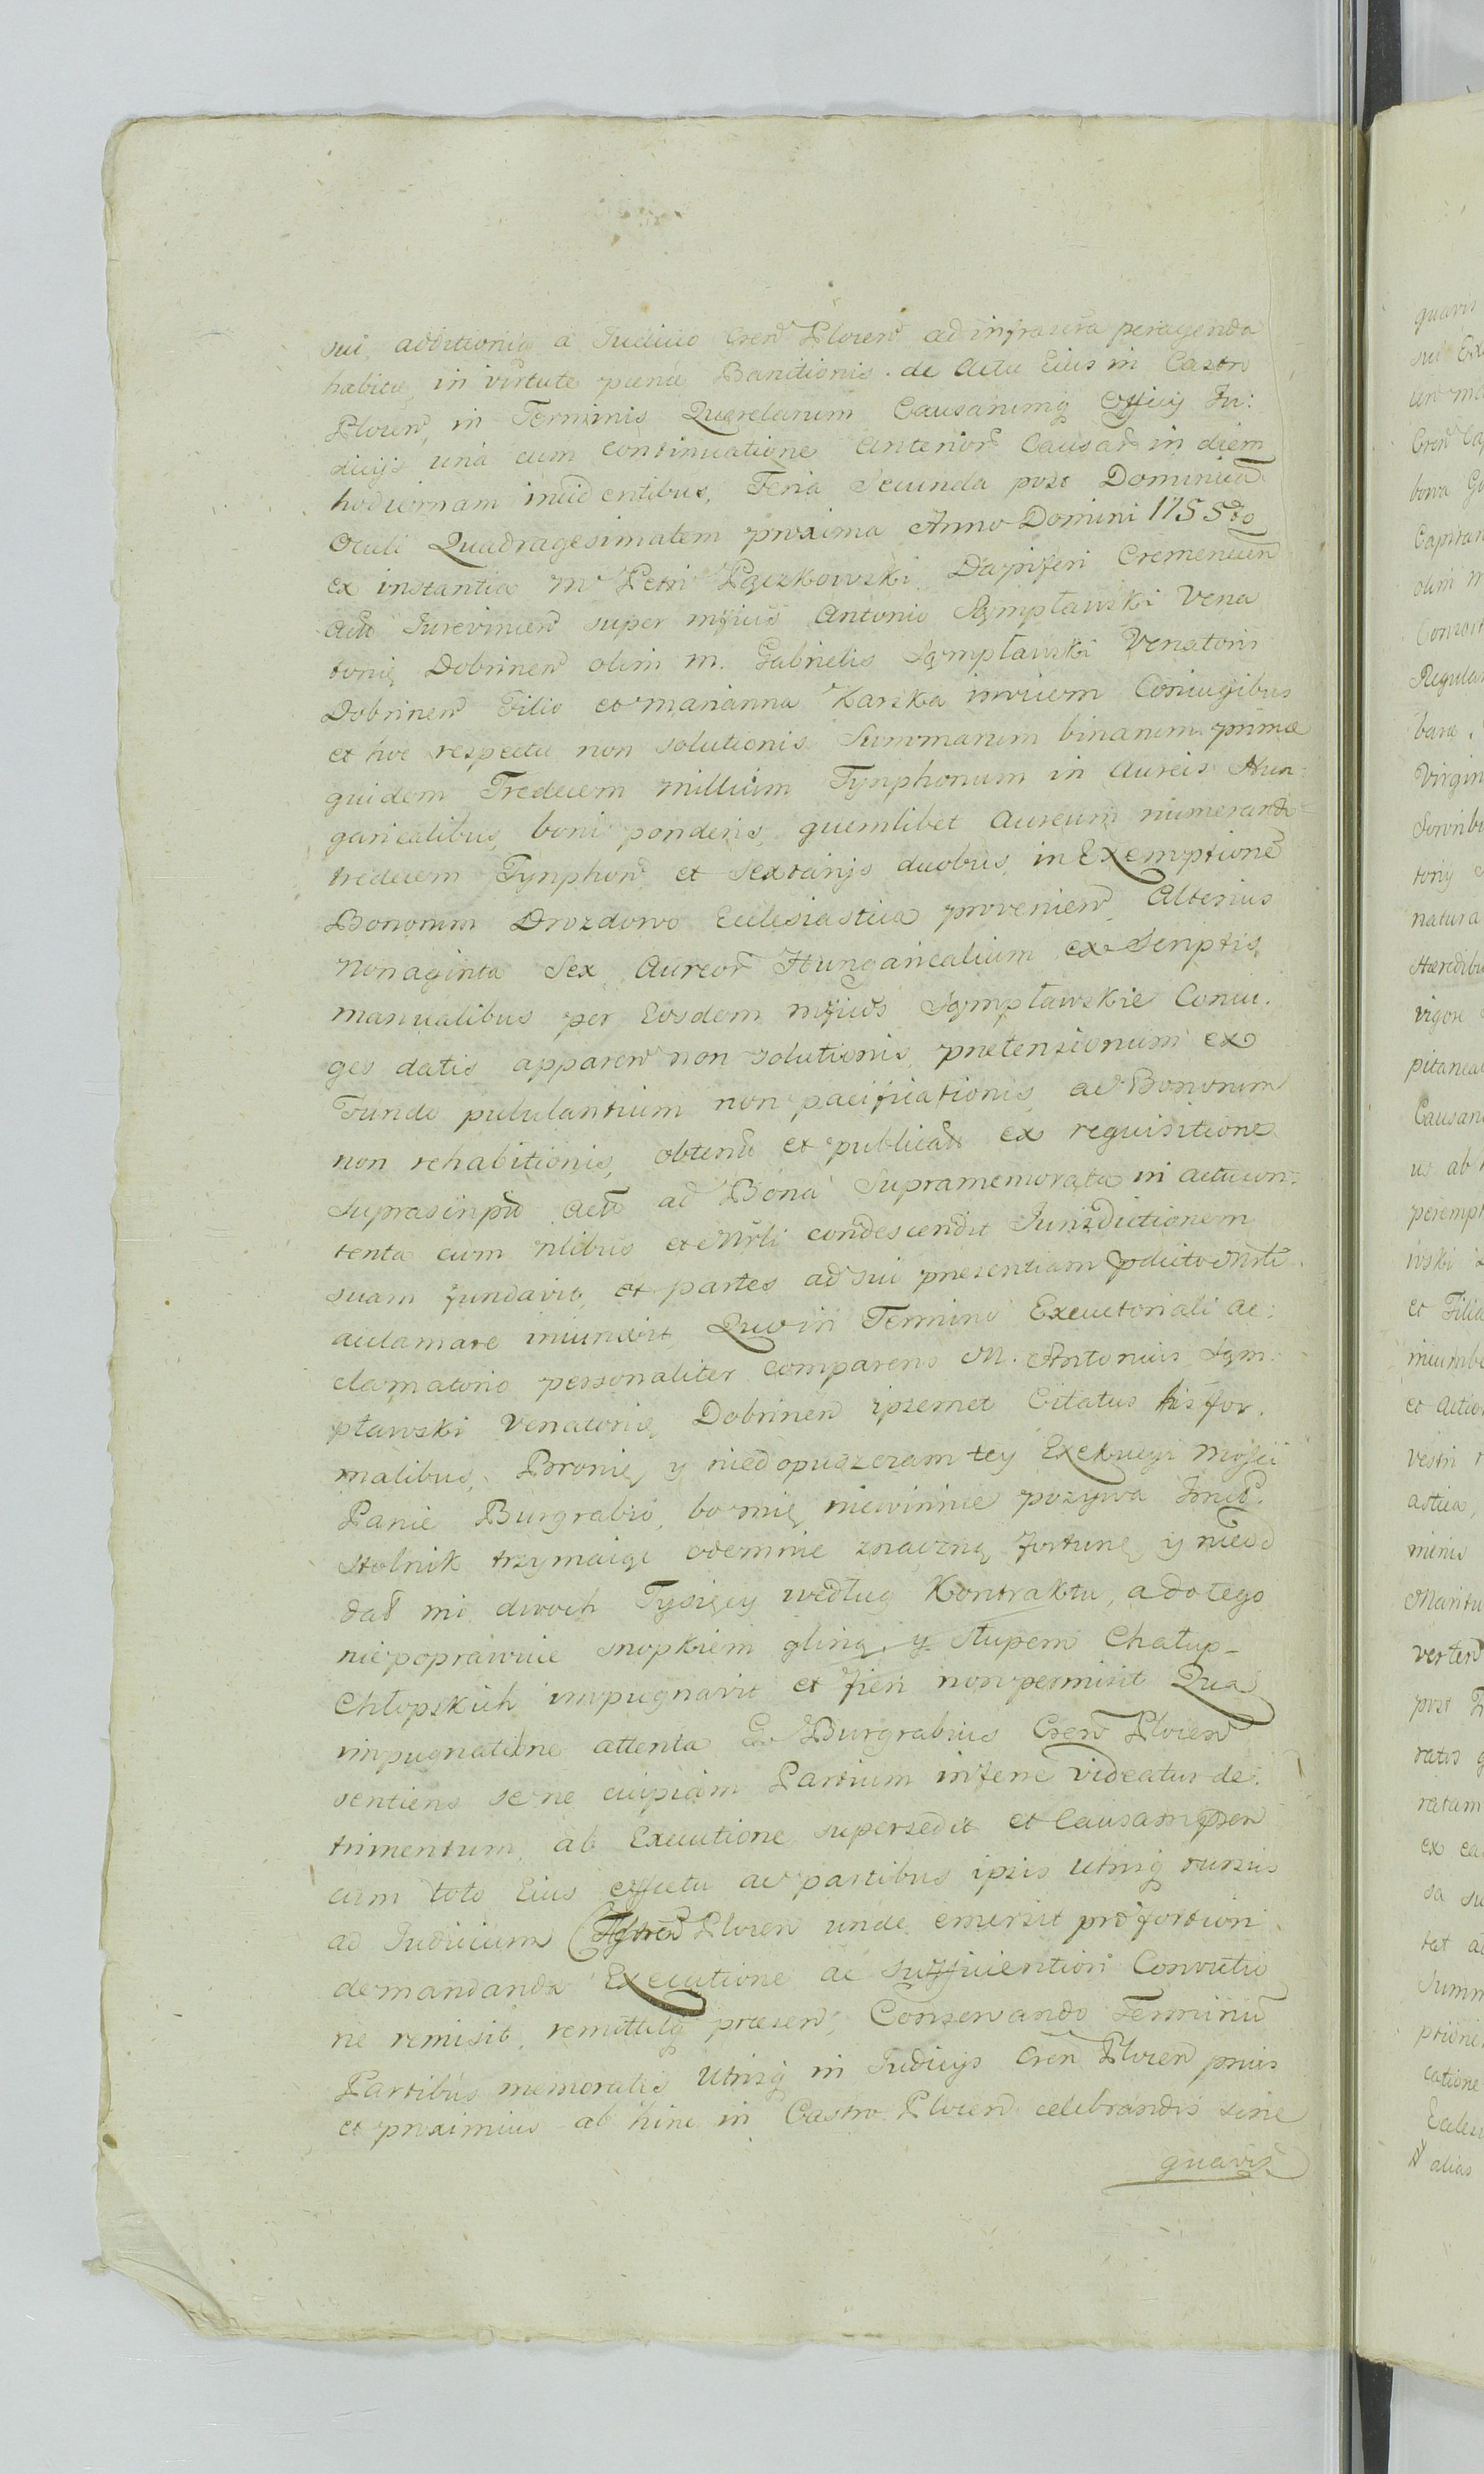 sui, additionis a Judicio Cren Plocen ad infrascra peragenda
habitæ, in virtute pænæ Banitionis. de Actu Eius in Castro
Plocen, in Terminis Querelarum Causarumq Officij Ju:
dicijs una cum continuatione anterior Causar in diem
hodiernam incidentibus, Feria Secunda post Dominica
Oculi Quadragesimalem proxima Anno Domini 1755to
ex instantia M Petri Pączkowski Dapiferi Cremenecen
Actu Jurevincen super mficus Antonio Sąmpławski Vena
torię Dobrinen olim M. Gabrielis Sąmpławski Venatoris
Dobrinen Filio et Marianna Karska invicem Coniugibus
et hoc respectu non solutionis Summarum binarum primæ
quidem Tredecem millium Tynphonum in Aureis Hun:
garicalibus, boni ponderis, quemlibet Aureum numerando
tredecem Tynphon et Sextarijs duobus, in Exemptione
Bonorum Drozdowo Ecclesiastica provenien, Alterius
Nonaginta Sex Aureor Hungaricalium ex Scriptis
manualibus per Eosdem mficos Sąmpławskie Coniu.
ges datis apparen non solutionis, pretensionum ex
Fundo pululantium non pacificationis, ac Bonorum
non rehabitionis, obtenta et publicata ex requisitione
suprascripti Actu ad Bona Supramemorata in actu con:
tenta cum nlibus et Mrli condescendit Jurisdictionem
suam fundavit, et partes ad sui presentiam pdicto Mrli
aclamare iniunxit, Quo in Termino Executoriali ac:
clamatorio personaliter comparens M. Antonius Sąm:
pławski Venatorię Dobrinen ipsemet Citatus his for.
malibus, Bronię y niedopuszczam tey Exekucyi Mości
Panie Burgrabio, bo mię niewinnie pozywa Jmć P.
Stolnik trzymaiąc odemnie znaczną fortunę y nieod
dał mi dwoch Tysięcy według Kontraktu, a do tego
niepoprawuie snopkiem gliną y słupem Chałup_
Chłopskich impugnavit et fieri non permisit Qua
impugnatione attenta G Burgrabius Cren Plocen
sentiens se ne cuipiam Partium inferre videatur de:
trimentum, ab Executione supersedit et Causam pren
cum toto Eius effectu ac partibus ipsis utrisq rursus
ad Judicium Plocen unde emersit pro fortiori
demandanda Executione ac sufficientiori Convictio
ne remisit, remittitq præsen, Conservando Terminu
Partibus memoratis utrisq in Judicijs Cren Plocen prius
et proximius ab hinc in Castro Plocen celebrandis sine
quavis